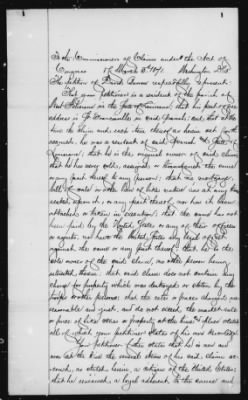 To the Commissioners of Claims under the Act of
Congress of March 3d 1871. Washington D.C.
The petition of David respectfully represent:
That your petitioner is a resident of the parish of
West Feliciana in the State of Louisiana; that his post office
address is St Francisville in said parish; and that at the
time the claim and each item thereof as herein set forth
accrued, he was a resident of said parish & State of
Louisiana; that he is the original owner of said claim;
that he has never sold, assigned, or transferred the same
or any part thereof to any person; that no mortgage,
bill of sale or other lien of like nature has at any time
rested upon it, or any part thereof, nor has it been
attached or taken in execution; that the same has not
been paid by the United States or any of their officers
or agents, nor have the United States any legal offset
against the same or any part thereof; that he is the
sole owner of the said claim, no other person being
interested therein; that said claim does not contain any
charge for property which was destroyed or stolen by the
troops or other persons; that the rates or prices charged are
reasonable and just, and do not exceed the market rate
or price of like stores or property at the time & place stated
all of which your petitioner states of his own knowledge
Your petitioner further states that he is now and
was at the time the several items of his said claim ac-
crued, as stated herein, a citizen of the United States;
that he remained a loyal adherent to the cause and